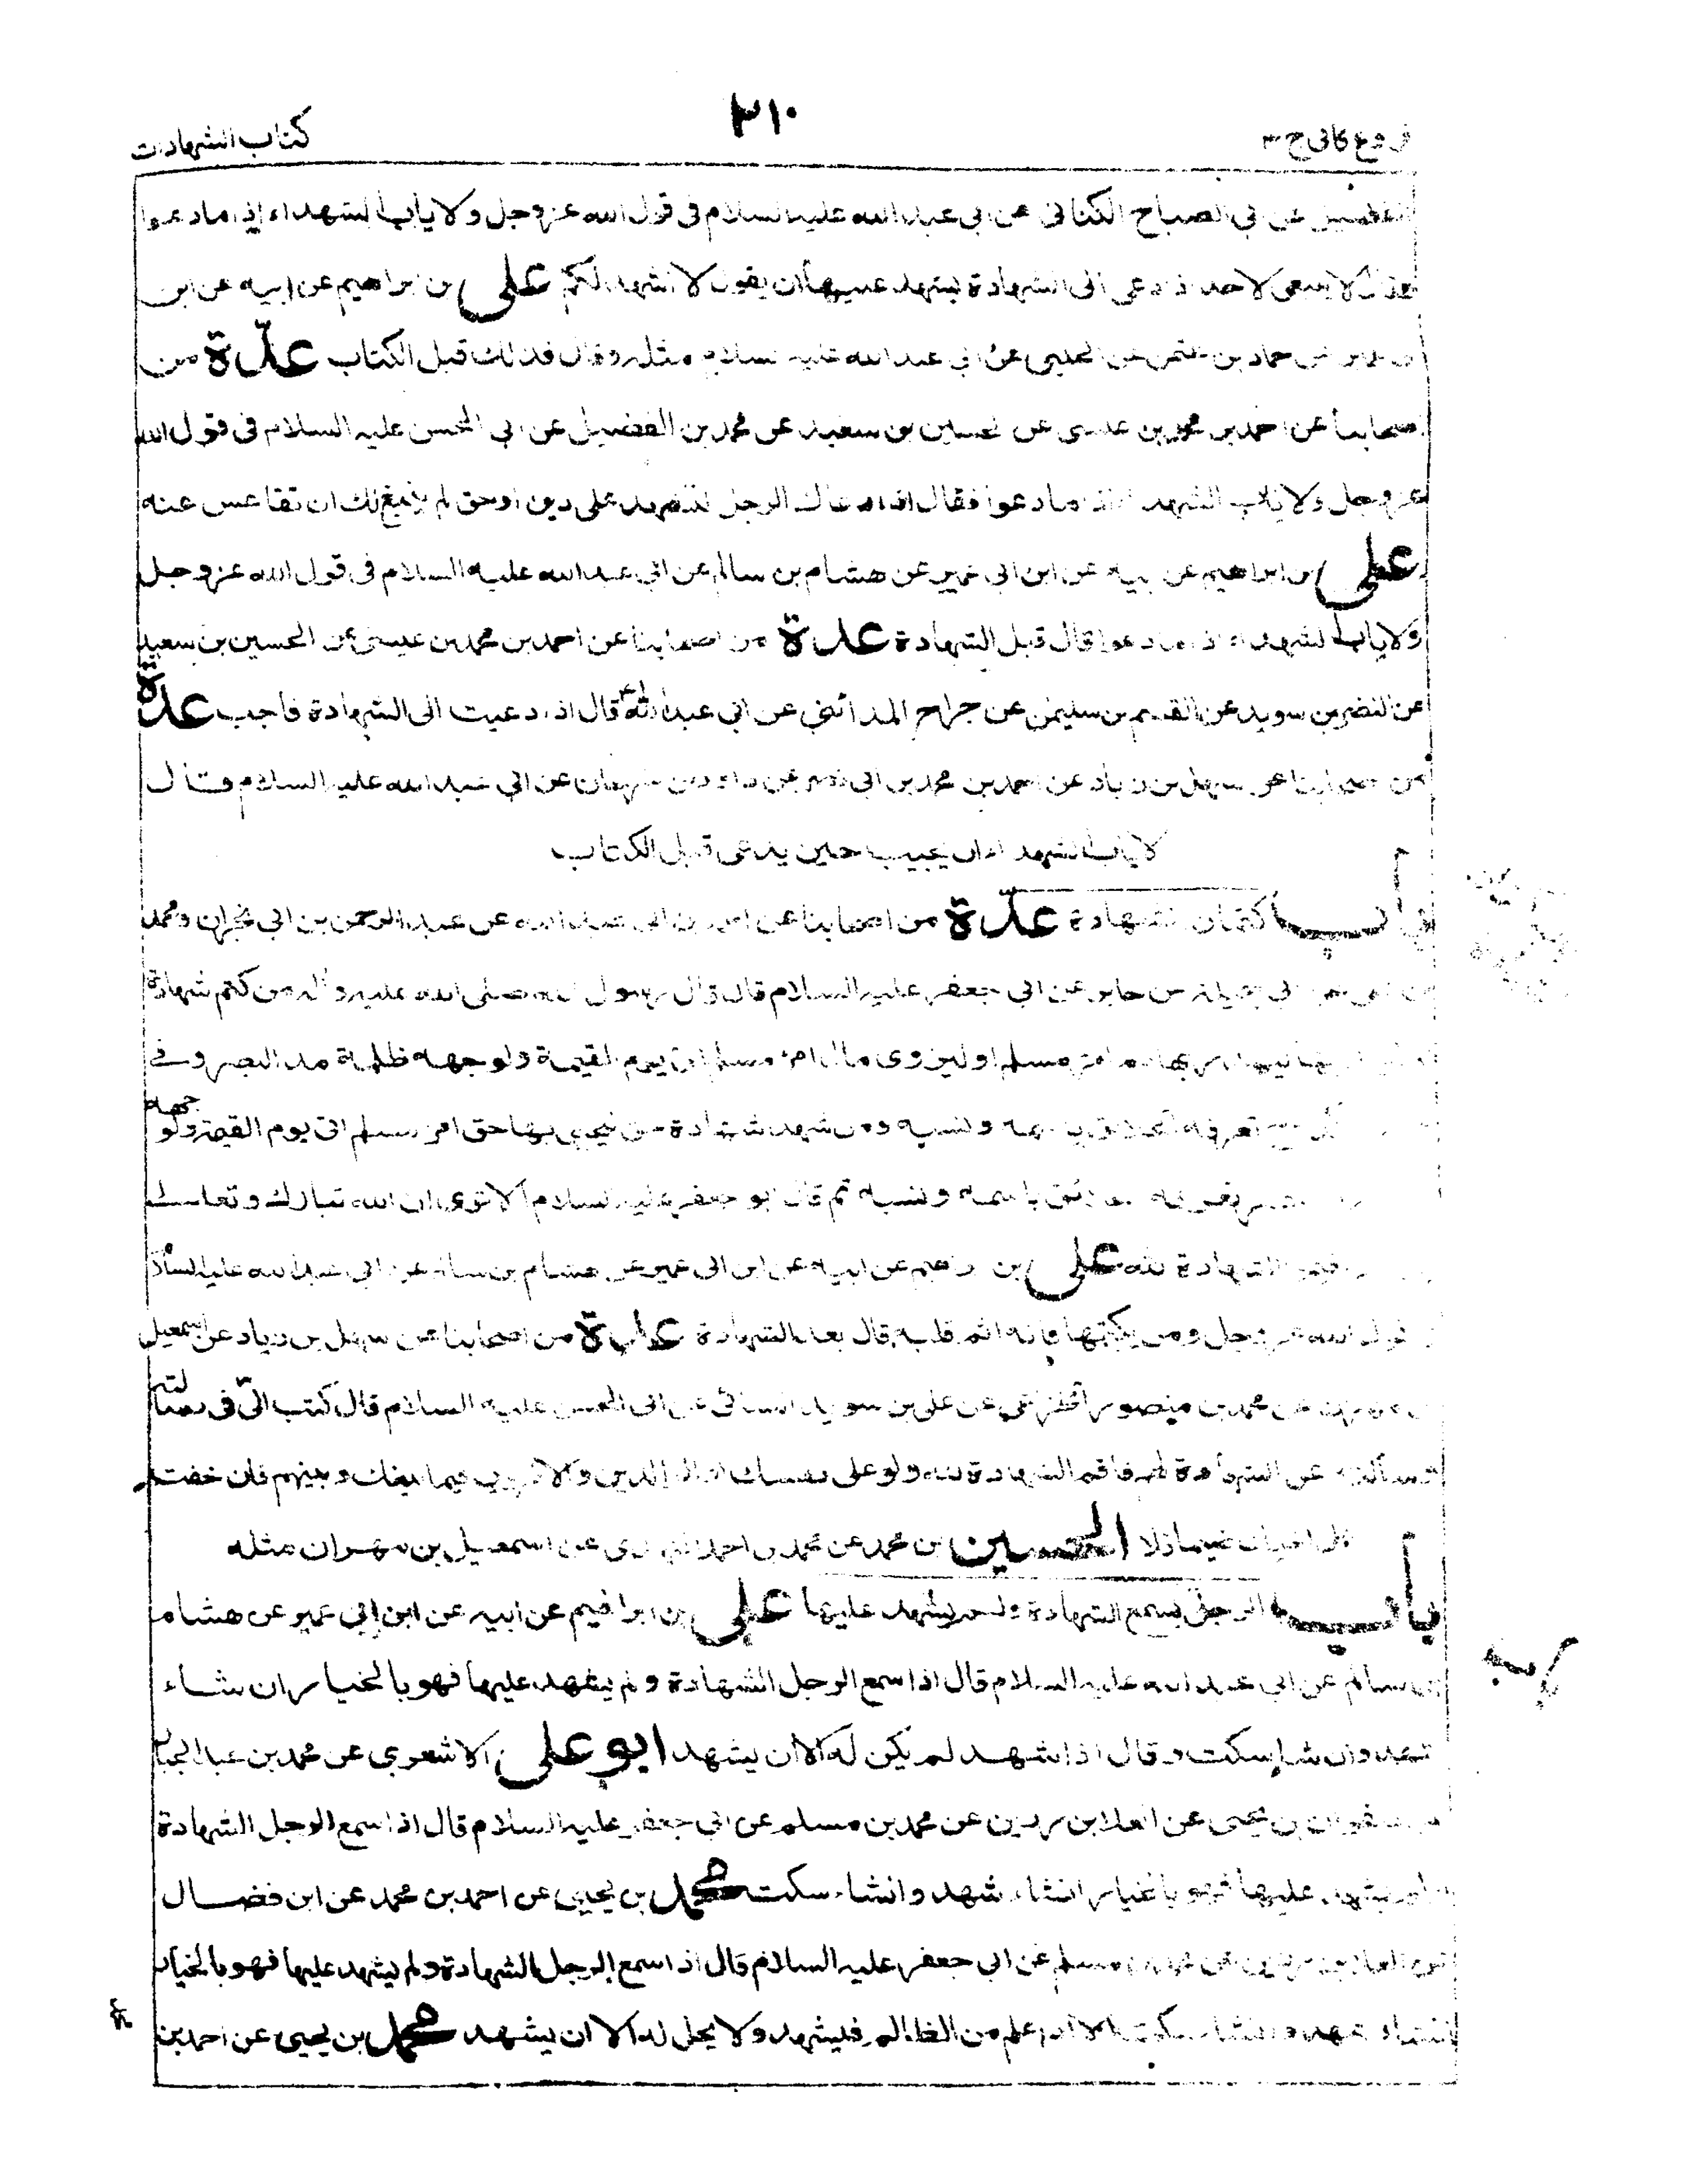 فروع كافى ج ٣
٣١٠
كتاب الشهادات
الفضيل عن ابى الصباح الكنانى عن ابى عبد الله عليه السلام فى قول الله عزوجل ولا ياب الشهداء اذا مادعوا
فقال لا ينبغى لاحد اذا دعى الى الشهادة يشهد عليها أن يقول لا اشهد لكم على بن ابراهيم عن ابيه عن ابن
ابى عمير عن حماد بن عثمن عن الحلبى عن ابى عبد الله عليه السلام مثله وقال فذلك قبل الكتاب عدّة من
اصحابنا عن احمد بن محمد بن عيسى عن الحسين بن سعيد عن محمد بن الفضيل عن ابى الحسن عليه السلام فى قول الله
عزوجل ولا ياب الشهداء اذا مادعوا فقال اذا دعاك الرجل لتشهد على دين اوحق لم ينبغ لك ان تقاعس عنه
على بن ابراهيم عن ابيه عن ابن ابى عمير عن هشام بن سالم عن ابى عبد الله عليه السلام فى قول الله عزوجل
ولاياب الشهداء اذا ما دعوا قال قبل الشهادة عدة من اصحابنا عن احمد بن محمد بن عيسى عن الحسين بن سعيد
عن النضر بن سويد عن القسم بن سليمن عن جراح المدائنى عن ابى عبد الله ع قال اذا دعيت الى الشهادة فاجب عدّة
من اصحابنا عن سهل بن زياد عن احمد بن محمد بن ابى نصر عن داود بن سرحان عن ابى عبد الله عليه السلام قال
لاياب الشهداء ان يجيب حين يدعى قبل الكتاب
باب كتمان الشهادة عدّة من اصحابنا عن احمد بن ابى عبد الله عن عبد الرحمن بن ابى نجران ومحمد
بن على عن ابى جميلة عن جابر عن ابى جعفر عليه السلام قال قال رسول الله صلى الله عليه وآله من كتم شهادة
بها دم امرء مسلم او ليزوى مال امرء مسلم اتى يوم القيمة ولوجهه ظلمة مد البصر وفى
تعرفه الخلائق باسمه ونسبه ومن شهد شهادة حق ليحيى بها حق امرء مسلم اتى يوم القيمة ولوجهه
تعرفه الخلائق باسمه ونسبه ثم قال ابو جعفر عليه السلام ألا ترى ان الله تبارك وتعالى
الشهادة لله على بن ابراهيم عن ابيه عن ابن ابى عمير عن هشام بن سالم عن ابى عبد الله عليه السلام
قول الله عزوجل ومن يكتمها فانه اثم قلبه قال بعد الشهادة عدة من اصحابنا عن سهل بن زياد عن اسمعيل
بن مهران عن محمد بن منصور الخزاعى عن على بن سويد السائى عن ابى الحسن عليه السلام قال كتب الىّ فى رسالته
وسألته عن الشهادة لهم فاقم الشهادة لله ولو على نفسك او الوالدين والاقربين فيما بينك وبينهم فان خفت
على اخيك ضيما فلا الحسين بن محمد عن محمد بن احمد النهدى عن اسمعيل بن مهران مثله
باب الرجل يسمع الشهادة ولم يشهد عليها على بن ابراهيم عن ابيه عن ابن ابى عمير عن هشام
بن سالم عن ابى عبد الله عليه السلام قال اذا سمع الرجل الشهادة ولم يشهد عليها فهو بالخيار ان شاء
شهد وان شاء سكت وقال اذا شهد لم يكن له الا ان يشهد ابو على الاشعرى عن محمد بن عبد الجبار
عن صفوان بن يحيى عن العلا بن رزين عن محمد بن مسلم عن ابى جعفر عليه السلام قال اذا سمع الرجل الشهادة
ولم يشهد عليها فهو بالخيار انشاء شهد وانشاء سكت محمد بن يحيى عن احمد بن محمد عن ابن فضال
عن العلا بن رزين عن محمد بن مسلم عن ابى جعفر عليه السلام قال اذا سمع الرجل الشهادة ولم يشهد عليها فهو بالخيار
انشاء شهد وانشاء سكت الا اذا علم من الظالم فيشهد ولا يحل له الا ان يشهد محمد بن يحيى عن احمد بن
باب